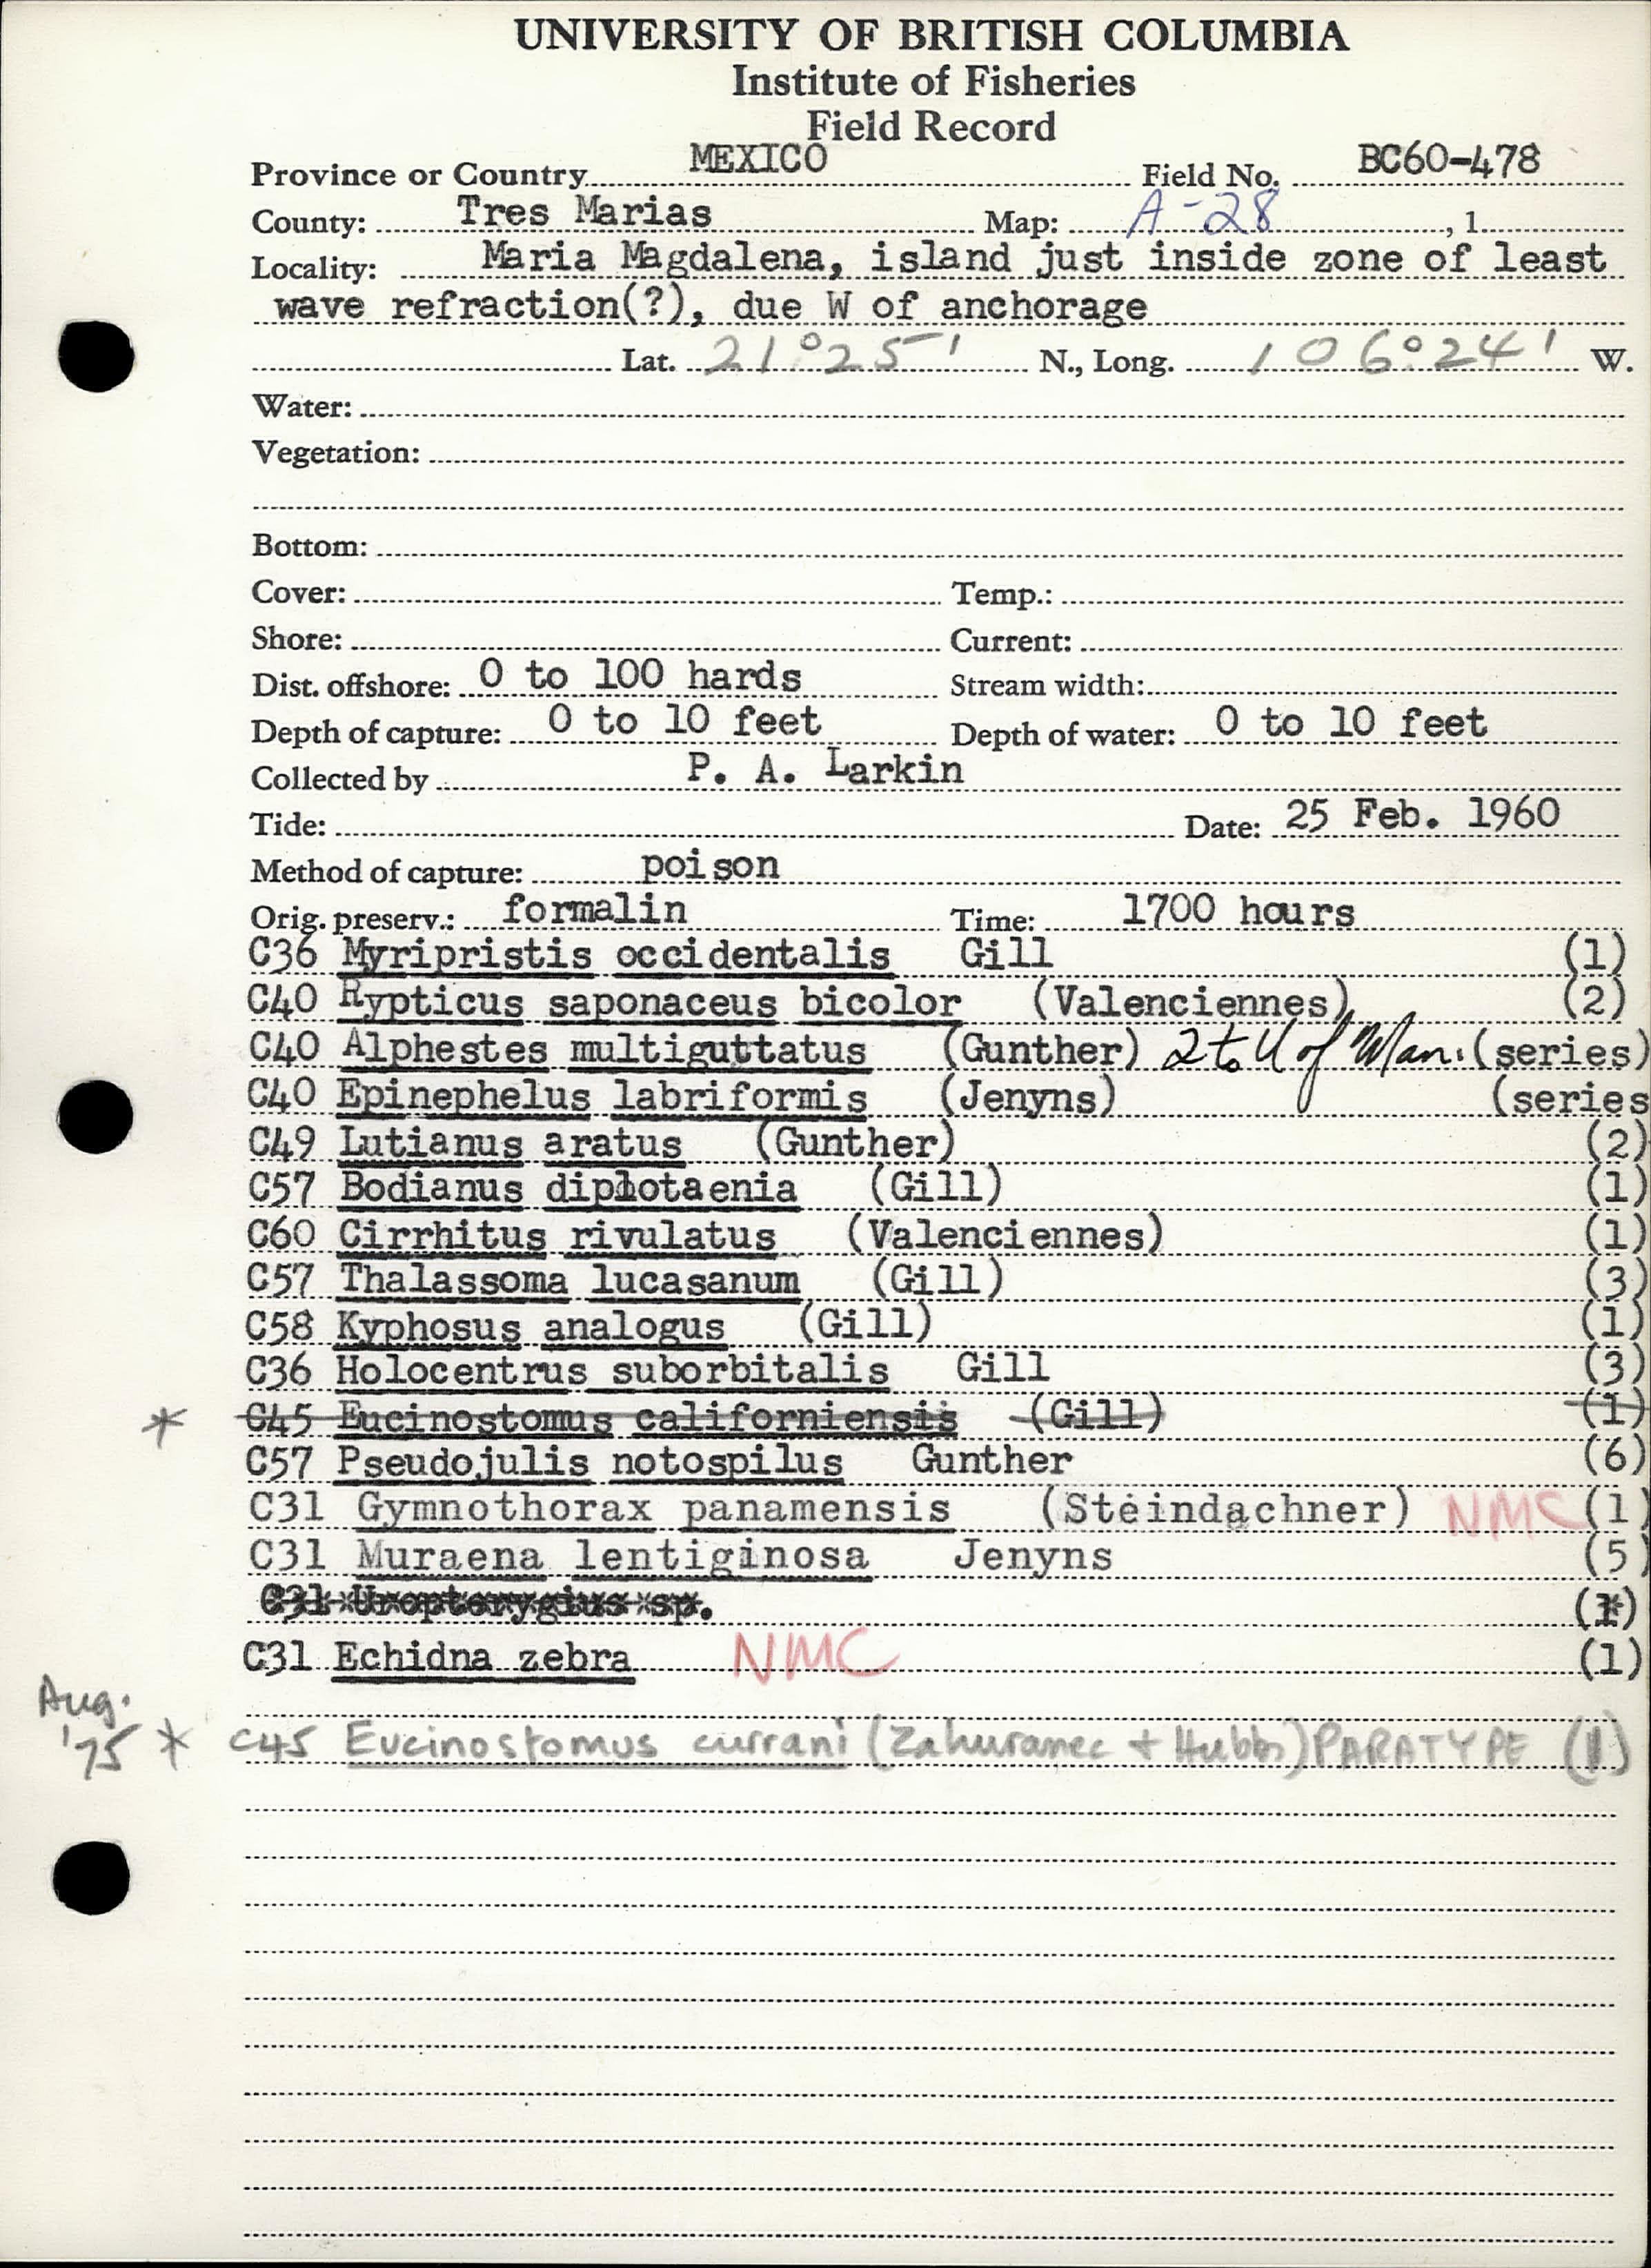 UNIVERSITY OF BRITISH COLUMBIA
Institute of Fisheries
Field Record
Province or Country MEXICO Field No. BC60-478
County: Tres Marias Map: A-28 , 1.
Locality: Maria Magdalena, island just inside zone of least
wave refraction(?), due W of anchorage
Lat. 21°25' N., Long. 106°24' W.
Water:
Vegetation:
Bottom:
Cover: Temp.:
Shore: Current:
Dist. offshore: 0 to 100 hards Stream width:
Depth of capture: 0 to 10 feet Depth of water: 0 to 10 feet
Collected by P. A. Larkin
Tide: Date: 25 Feb. 1960
Method of capture: poison
Orig. preserv.: formalin Time: 1700 hours
C36 Myripristis occidentalis Gill (1)
C40 Rypticus saponaceus bicolor (Valenciennes) (2)
C40 Alphestes multiguttatus (Gunther) 2 to U of Man. (series)
C40 Epinephelus labriformis (Jenyns) (series
C49 Lutianus aratus (Gunther) (2)
C57 Bodianus diplotaenia (Gill) (1)
C60 Cirrhitus rivulatus (Valenciennes) (1)
C57 Thalassoma lucasanum (Gill) (3)
C58 Kyphosus analogus (Gill) (1)
C36 Holocentrus suborbitalis Gill (3)
* C45 Eucinostomus californiensis (Gill) (1)
C57 Pseudojulis notospilus Gunther (6)
C31 Gymnothorax panamensis (Steindachner) NMC (1)
C31 Muraena lentiginosa Jenyns (5)
C31 Uropterygius sp. (1)
C31 Echidna zebra NMC (1)
Aug.
'75 * C45 Eucinostomus currani (Zahuranec + Hubbs) PARATYPE (1)